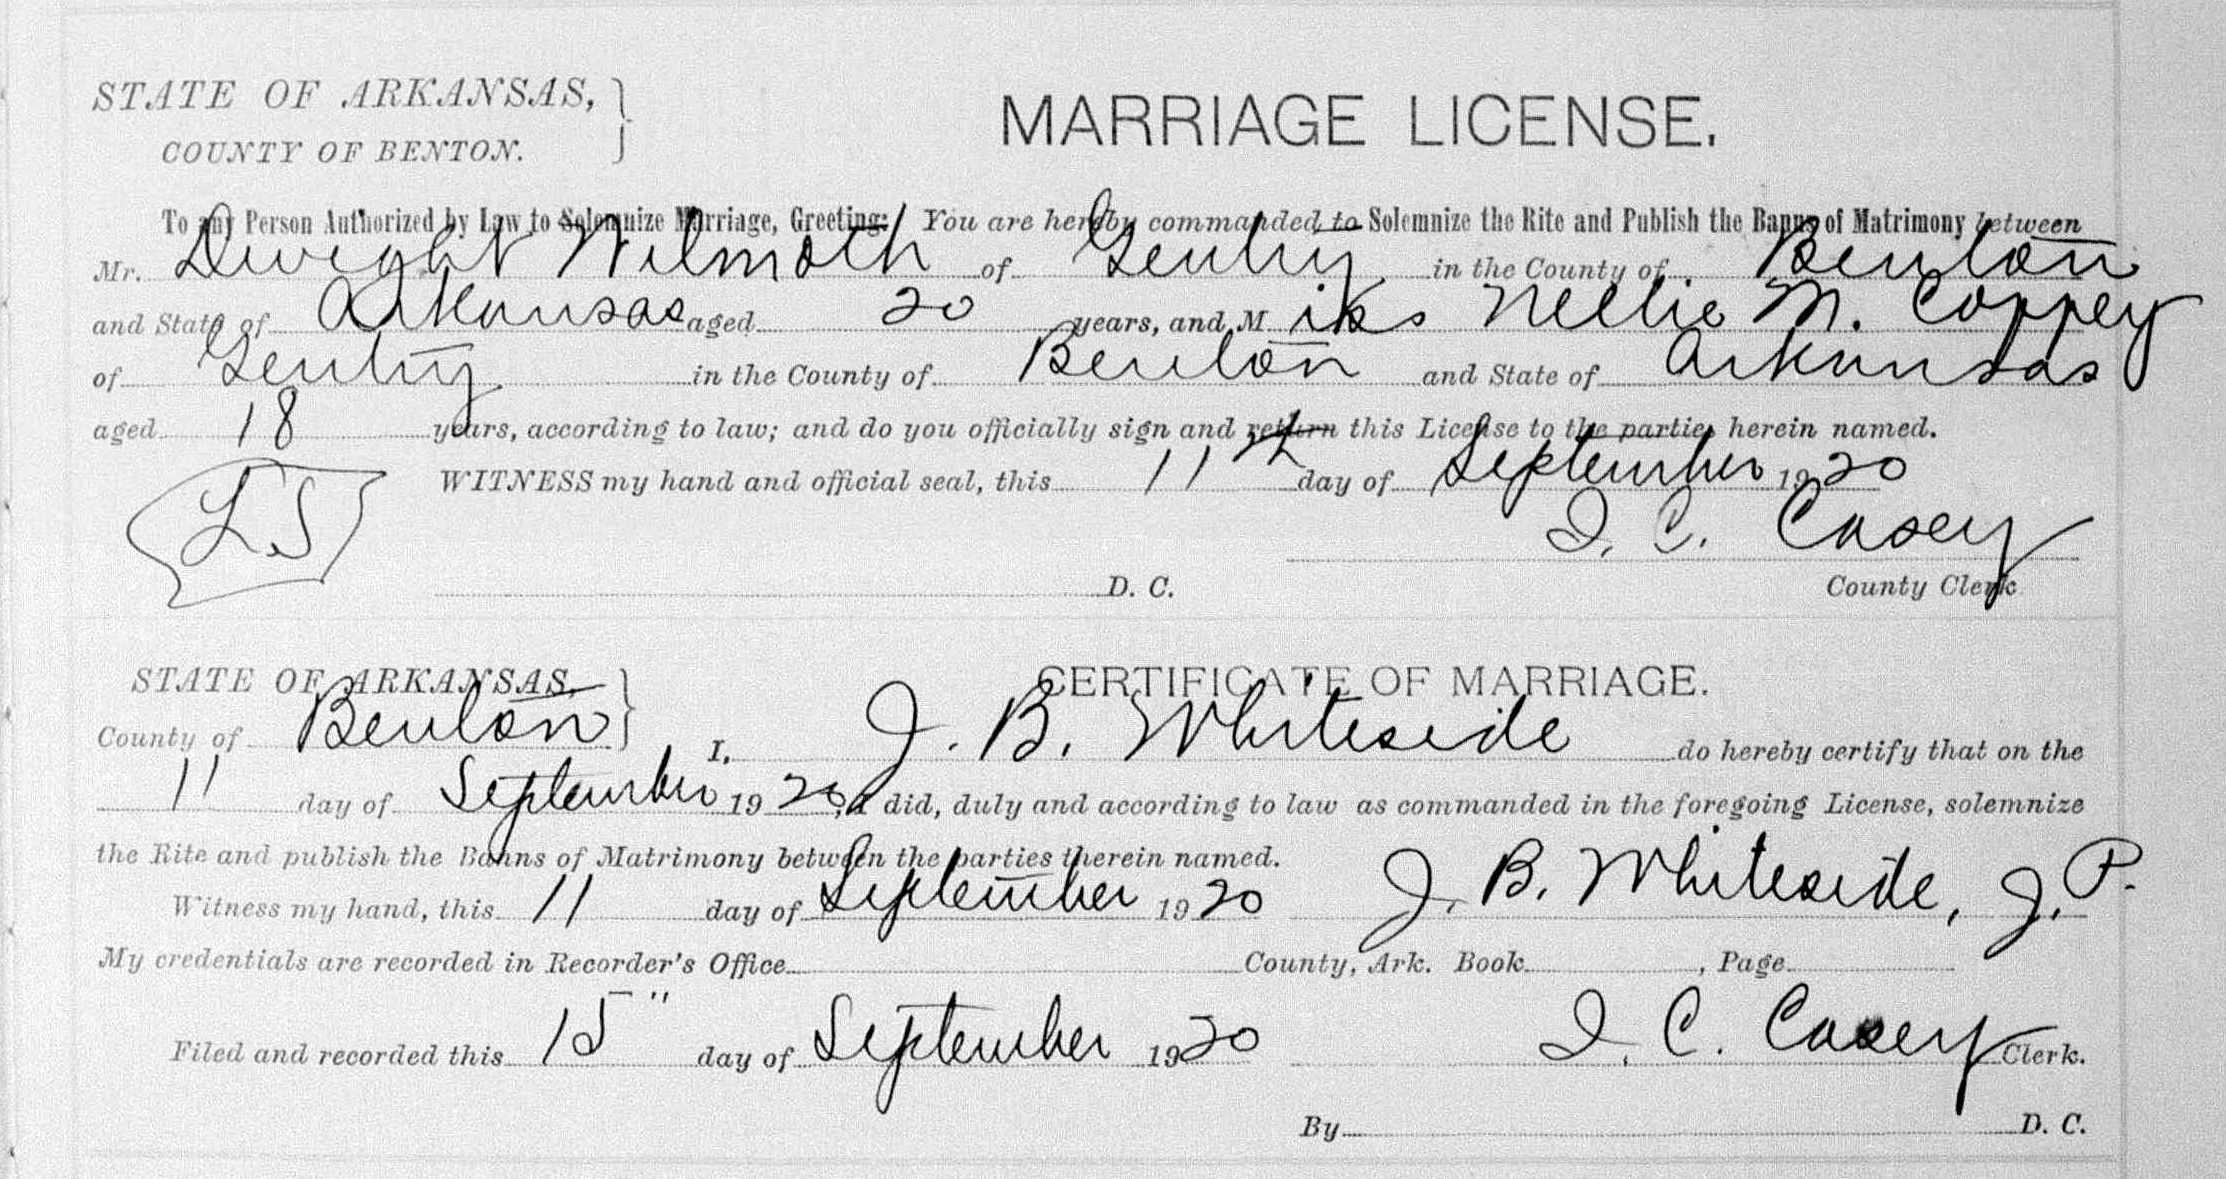 STATE OF ARKANSAS,
COUNTY OF BENTON.
MARRIAGE LICENSE.
To any Person Authorized by Law to Solemnize Marriage, Greeting: You are hereby commanded to Solemnize the Rite and Publish the Banns of Matrimony between
Mr. Dwight Wilmoth of Gentry in the County of Benton
and State of Arkansas aged 20 years, and Miss Nellie M. Coppey
of Gentry in the County of Benton and State of Arkansas
aged 18 years, according to law; and do you officially sign and return this License to the parties herein named.
WITNESS my hand and official seal, this 11th day of September 1920
LS
I. C. Casey
D. C. County Clerk
STATE OF ARKANSAS,
CERTIFICATE OF MARRIAGE.
County of Benton
I, J. B. Whiteside do hereby certify that on the
11 day of September 1920, I did, duly and according to law as commanded in the foregoing License, solemnize
the Rite and publish the Banns of Matrimony between the parties therein named.
Witness my hand, this 11 day of September 1920 J. B. Whiteside, J. P.
My credentials are recorded in Recorder's Office County, Ark. Book , Page
Filed and recorded this 15" day of September 1920 I. C. Casey Clerk.
By D. C.